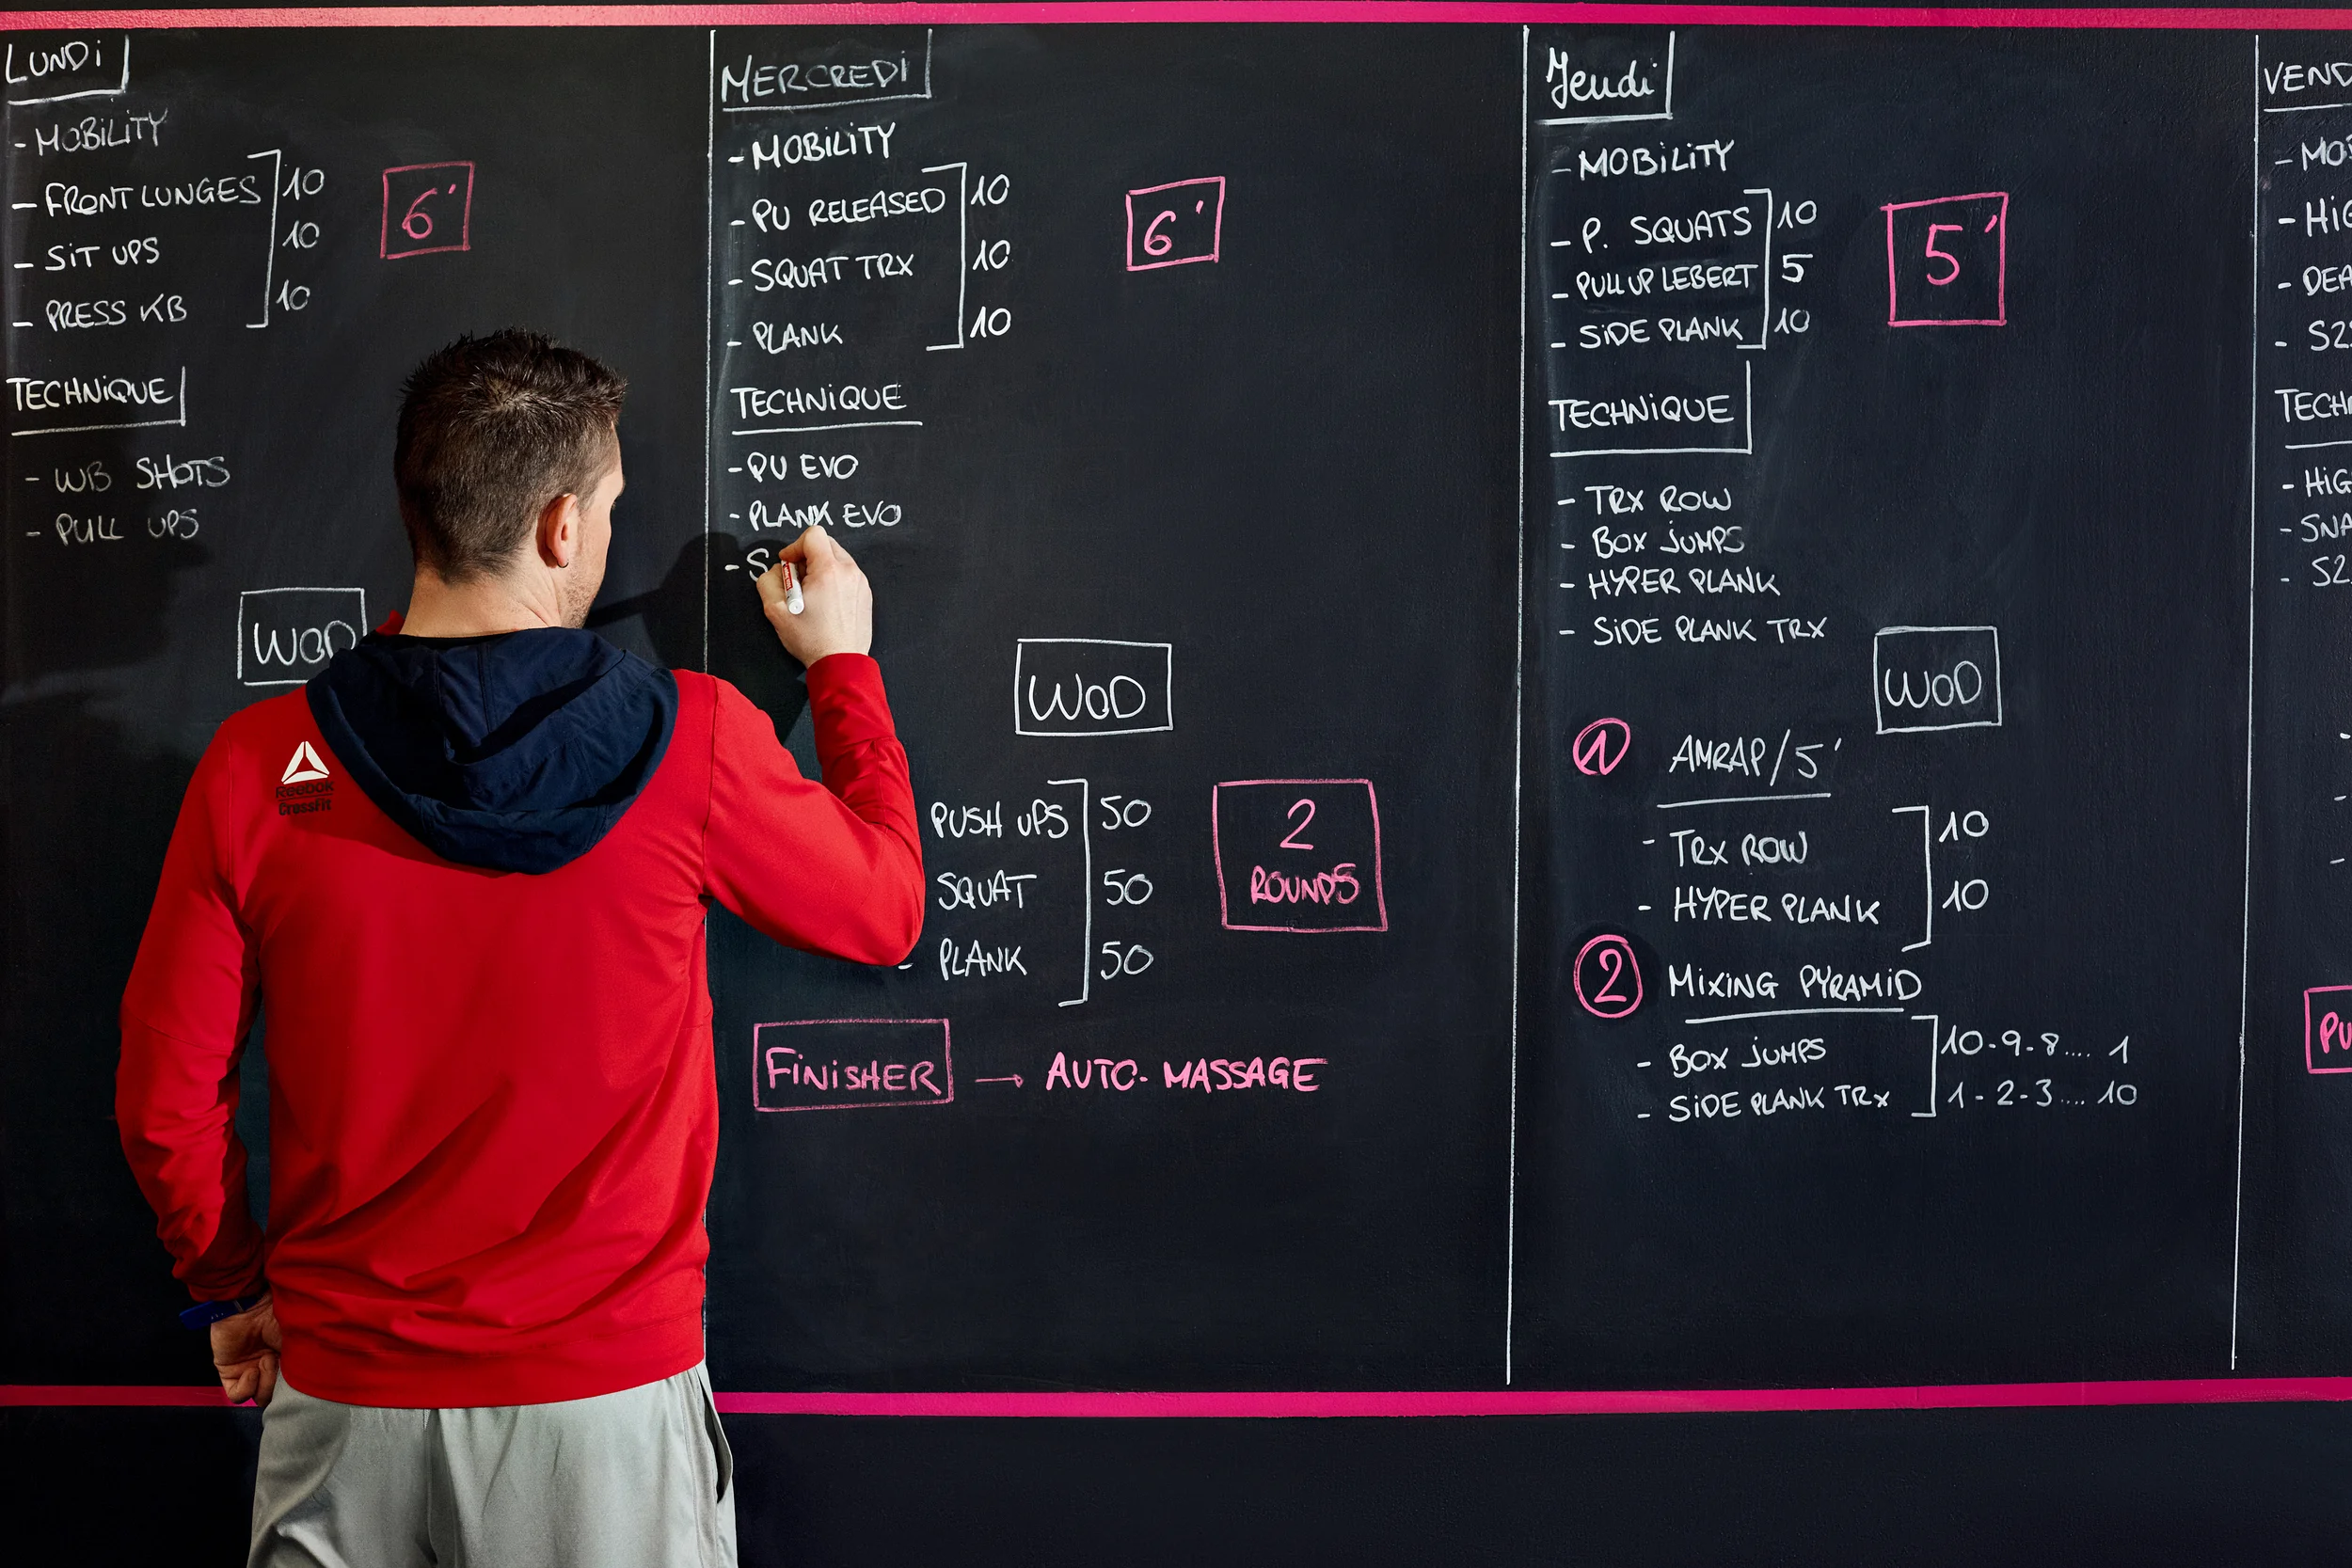 LUNDi
- MOBiLiTY
- FRONT LUNGES 10
- SiT UPS 10
- PRESS KB 10
6'
TECHNiQUE
- WB SHOTS
- PULL UPS
WOD
Reebok
CrossFit
MERCREDi
- MOBiLiTY
- PU RELEASED 10
- SQUAT TRX 10
- PLANK 10
6'
TECHNiQUE
- PU EVO
- PLANK EVO
- S
WOD
PUSH UPS 50
SQUAT 50
- PLANK 50
2
ROUNDS
FiNiSHER → AUTO-MASSAGE
Jeudi
- MOBiLiTY
- P. SQUATS 10
- PULL UP LEBERT 5
- SiDE PLANK 10
5'
TECHNiQUE
- TRX ROW
- BOX JUMPS
- HYPER PLANK
- SiDE PLANK TRX
WOD
1 AMRAP/5'
- TRX ROW 10
- HYPER PLANK 10
2 MiXiNG PYRAMiD
- BOX JUMPS 10-9-8.... 1
- SiDE PLANK TRX 1-2-3.... 10
VEND
- MO
- HiG
- DEA
- S2
TECH
- HiG
- SNA
- S2
PU